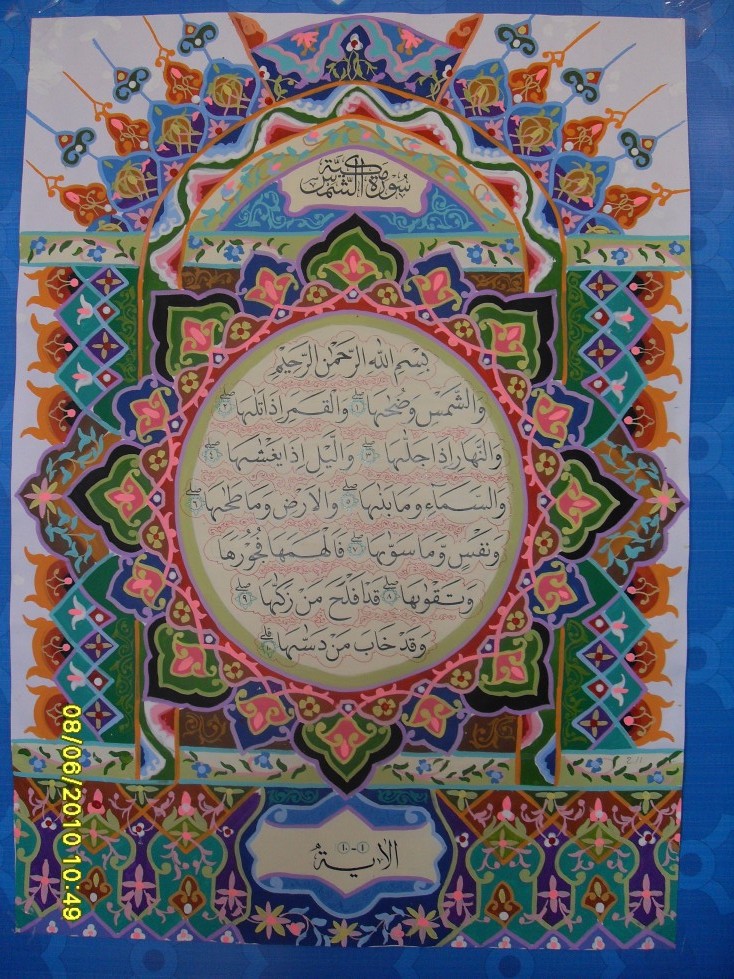 سُورَةُ الشَّمْسِ مَكِّيَّة
بِسْمِ اللهِ الرَّحْمٰنِ الرَّحِيْمِ
وَالشَّمْسِ وَضُحٰىهَا ۝١ صلى وَالْقَمَرِ اِذَا تَلٰىهَا ۝٢ صلى
وَالنَّهَارِ اِذَا جَلّٰىهَا ۝٣ صلى وَالَّيْلِ اِذَا يَغْشٰىهَا ۝٤ صلى
وَالسَّمَاۤءِ وَمَا بَنٰىهَا ۝٥ صلى وَالْاَرْضِ وَمَا طَحٰىهَا ۝٦ صلى
وَنَفْسٍ وَّمَا سَوّٰىهَا ۝٧ صلى فَاَلْهَمَهَا فُجُوْرَهَا
وَتَقْوٰىهَا ۝٨ صلى قَدْ اَفْلَحَ مَنْ زَكّٰىهَا ۝٩ صلى
وَقَدْ خَابَ مَنْ دَسّٰىهَا ۝١٠ قلى
الاٰية ١-١٠
08/06/2010 10:49